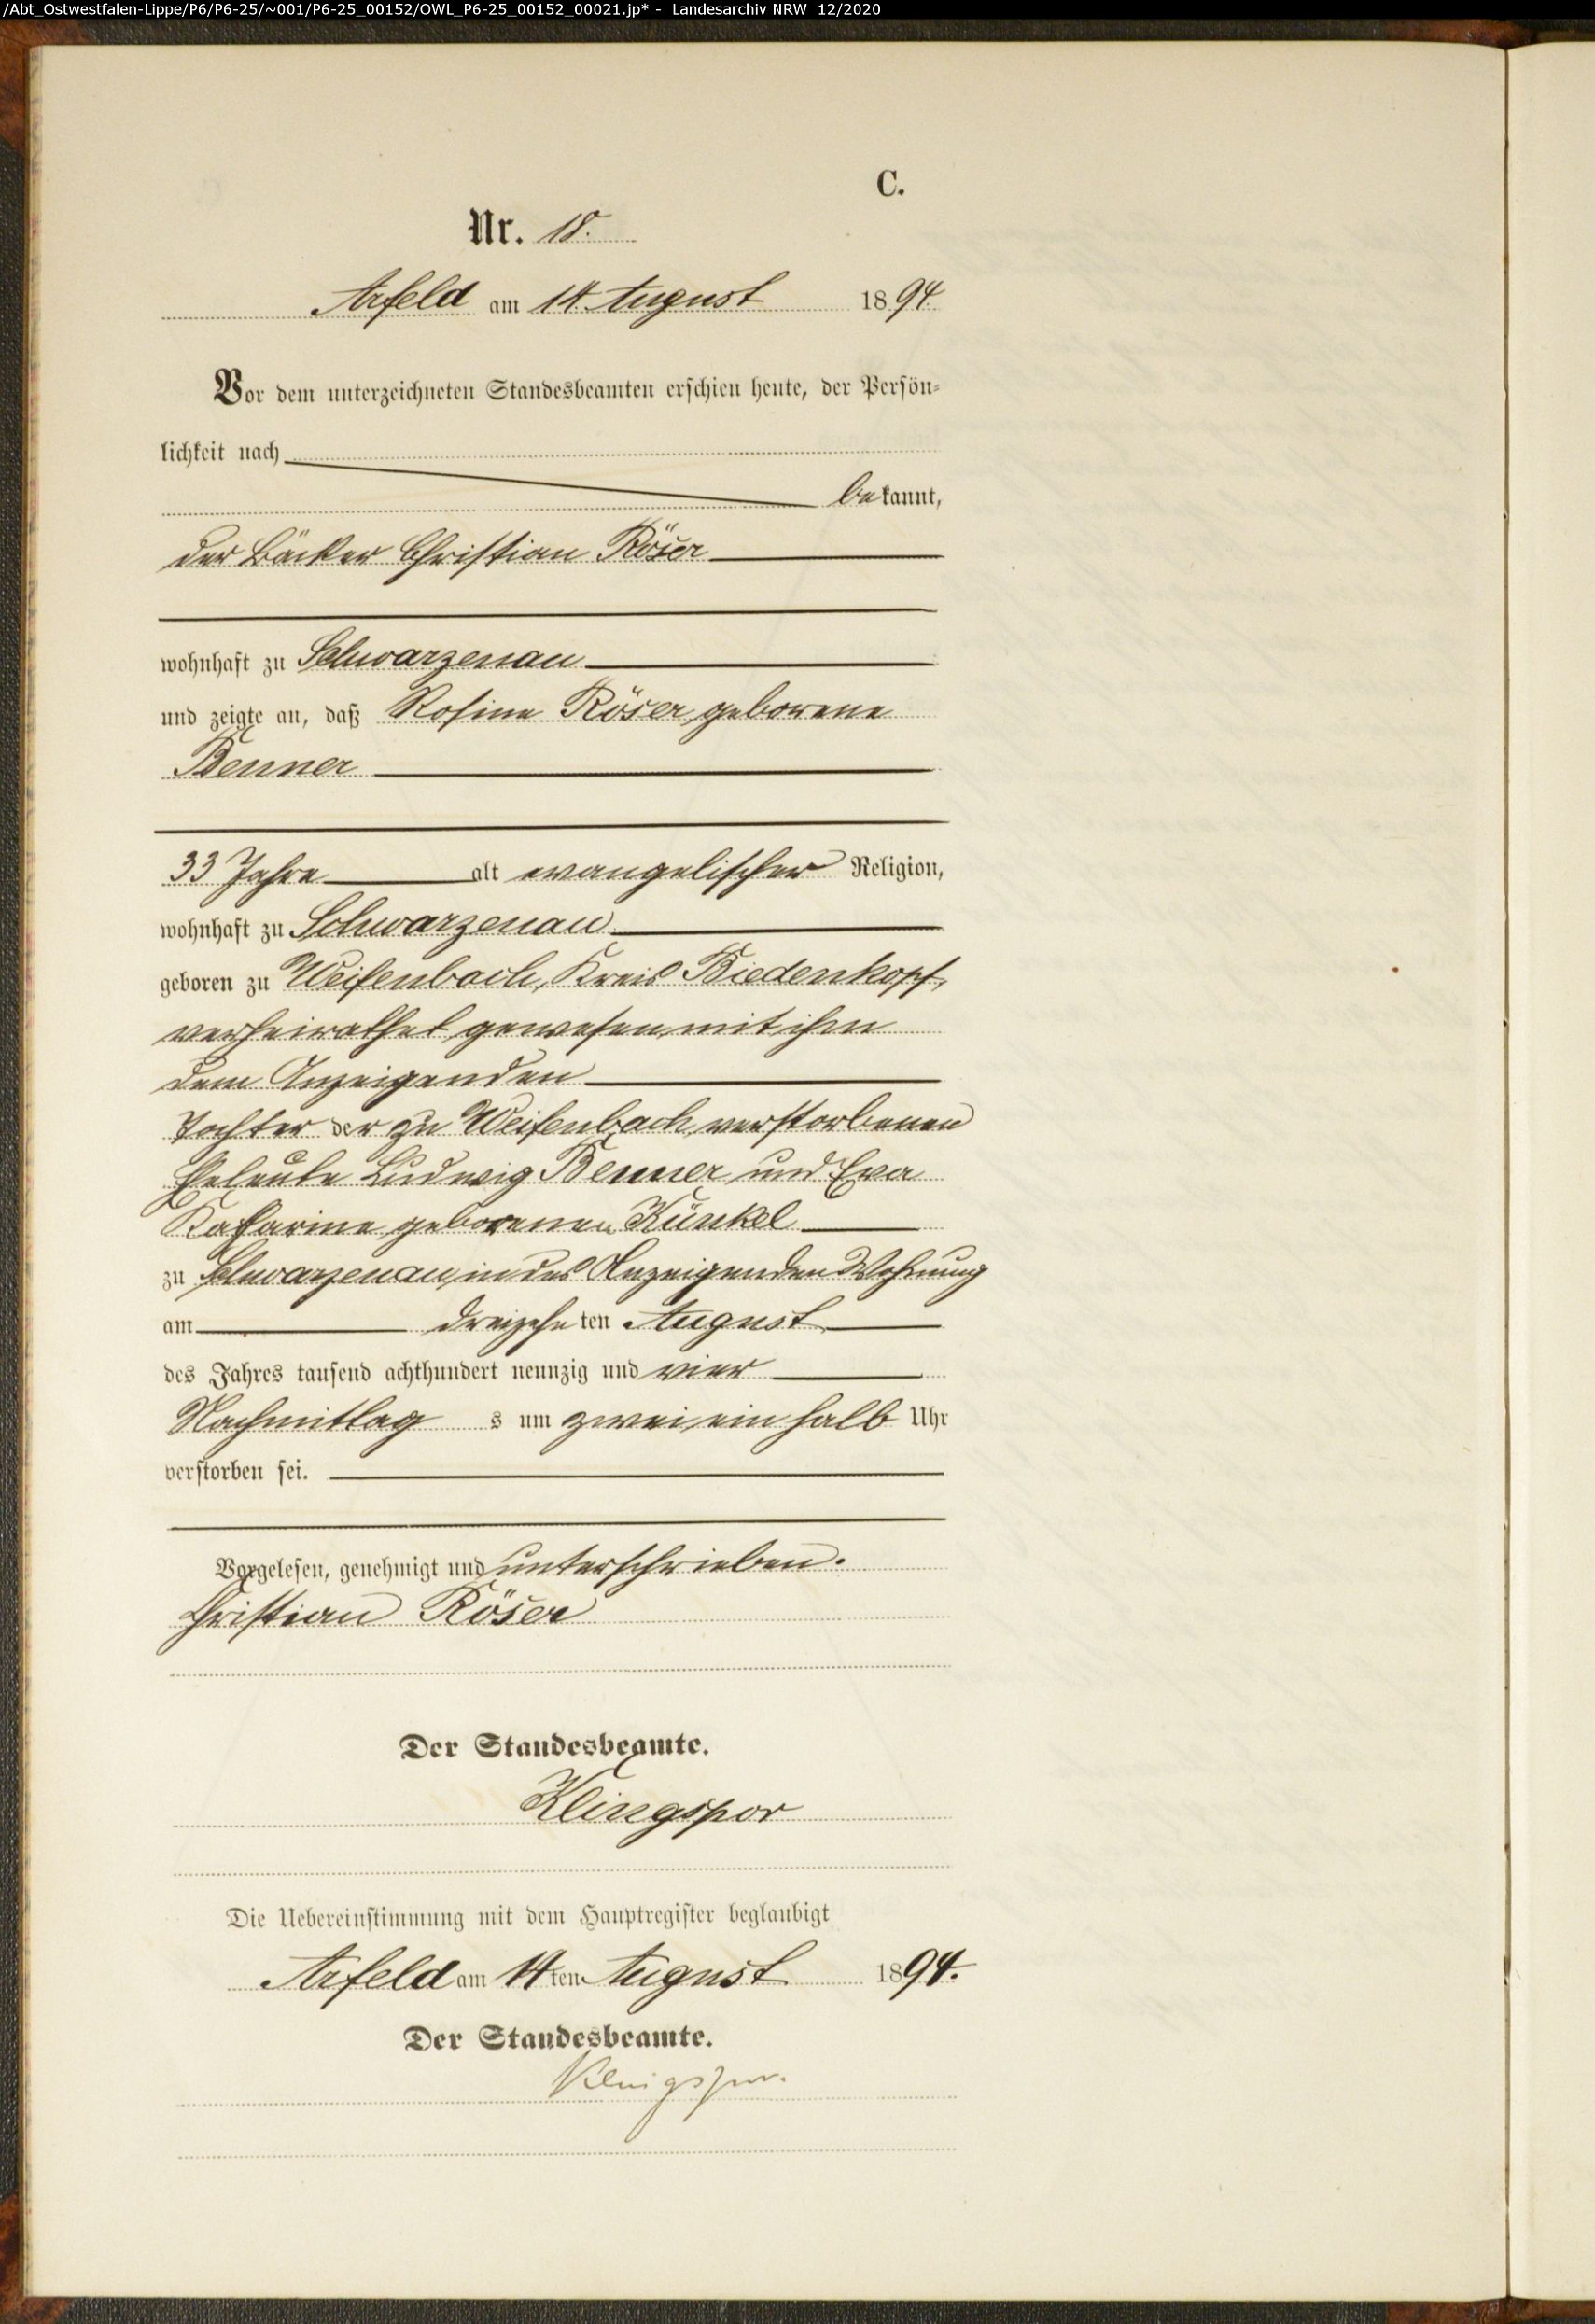 /Abt_Ostwestfalen-Lippe/P6/P6-25/~001/P6-25_00152/OWL_P6-25_00152_00021.jp* - Landesarchiv NRW 12/2020
C.
Nr. 18.
Arfeld am 14. August 1894
Vor dem unterzeichneten Standesbeamten erschien heute, der Persön-
lichkeit nach
bekannt,
der Bäcker Christian Röser
wohnhaft zu Schwarzenau
und zeigte an, daß Rosine Röser, geborene
Benner
33 Jahre alt evangelischer Religion,
wohnhaft zu Schwarzenau
geboren zu Weifenbach, Kreis Biedenkopf,
verheirathet gewesen mit ihm
dem Anzeigenden
Tochter der zu Weifenbach verstorbenen
Eheleute Ludwig Benner und Eva
Katharine geborenen Künkel
zu Schwarzenau, in des Anzeigenden Wohnung
am dreizehnten August
des Jahres tausend achthundert neunzig und vier
Nachmittags um zwei ein halb Uhr
verstorben sei.
Vorgelesen, genehmigt und unterschrieben.
Christian Röser
Der Standesbeamte.
Klingspor
Die Uebereinstimmung mit dem Hauptregister beglaubigt
Arfeld am 14ten August 1894.
Der Standesbeamte.
Klingspor.